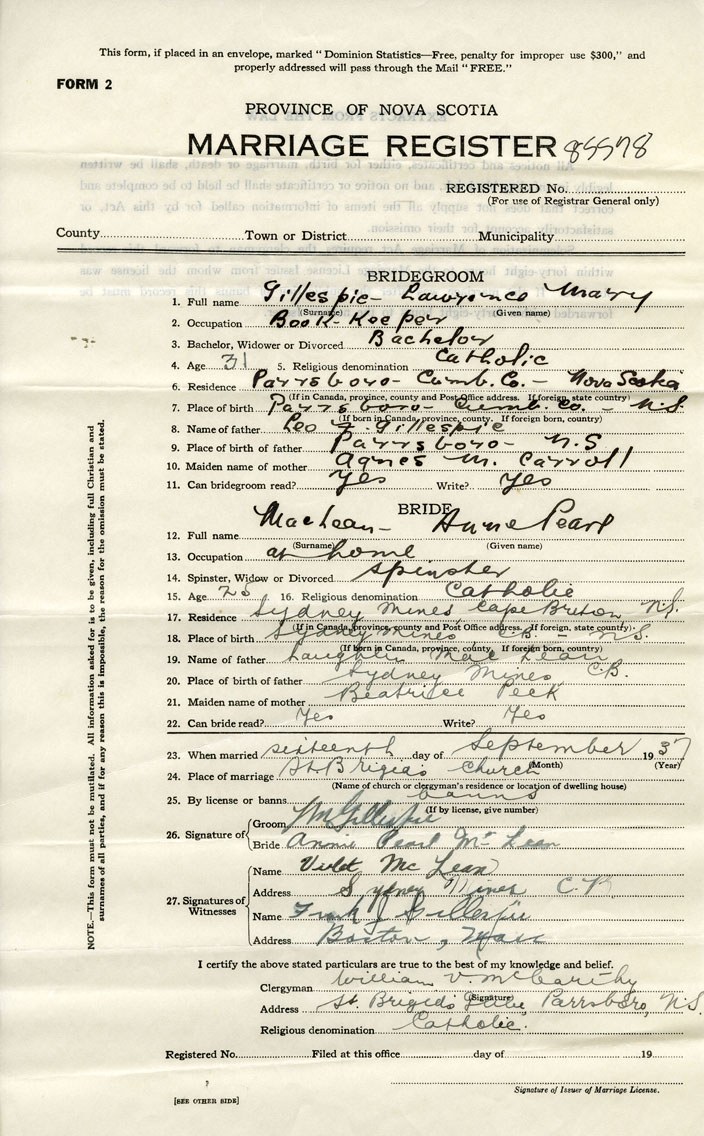 This form, if placed in an envelope, marked "Dominion Statistics—Free, penalty for improper use $300," and
properly addressed will pass through the Mail "FREE."
FORM 2
PROVINCE OF NOVA SCOTIA
MARRIAGE REGISTER
REGISTERED No.
(For use of Registrar General only)
County Town or District Municipality
BRIDEGROOM
1. Full name Gillespie- Lawrence Mary
(Surname) (Given name)
2. Occupation Book-Keeper
3. Bachelor, Widower or Divorced Bachelor
4. Age 31 5. Religious denomination Catholic
6. Residence Parrsboro- Cumb. Co. - Nova Scotia
(If in Canada, province, county and Post Office address. If foreign, state country)
7. Place of birth Parrsboro- Cumb. Co. - N.S.
(If born in Canada, province, county. If foreign born, country)
8. Name of father Leo F. Gillespie
9. Place of birth of father Parrsboro- N.S
10. Maiden name of mother Agnes M. Carroll
11. Can bridegroom read? Yes Write? Yes
BRIDE
12. Full name MacLean- Anne Pearl
(Surname) (Given name)
13. Occupation at home
14. Spinster, Widow or Divorced spinster
15. Age 25 16. Religious denomination Catholic
17. Residence Sydney Mines Cape Breton N.S.
(If in Canada, province, county and Post Office address. If foreign, state country)
18. Place of birth Sydney Mines C.B. - N.S.
(If born in Canada, province, county. If foreign born, country)
19. Name of father Laughlin MacLean
20. Place of birth of father Sydney Mines C.B.
21. Maiden name of mother Beatrice Peck
22. Can bride read? Yes Write? Yes
23. When married sixteenth day of September 1937
(Month) (Year)
24. Place of marriage St. Brigids Church
(Name of church or clergyman's residence or location of dwelling house)
25. By license or banns banns
(If by license, give number)
26. Signature of
Groom Gillespie
Bride Annie Pearl McLean
27. Signatures of Witnesses
Name Violet McLean
Address Sydney Mines C.B
Name Frank J Gillespie
Address Boston, Mass
I certify the above stated particulars are true to the best of my knowledge and belief.
Clergyman William V. McCarthy
(Signature)
Address St. Brigids Parrsboro, N.S.
Religious denomination Catholic.
Registered No. Filed at this office day of 19
Signature of Issuer of Marriage License.
[SEE OTHER SIDE]
NOTE.—This form must not be mutilated. All information asked for is to be given, including full Christian and
surnames of all parties, and if for any reason this is impossible, the reason for the omission must be stated.